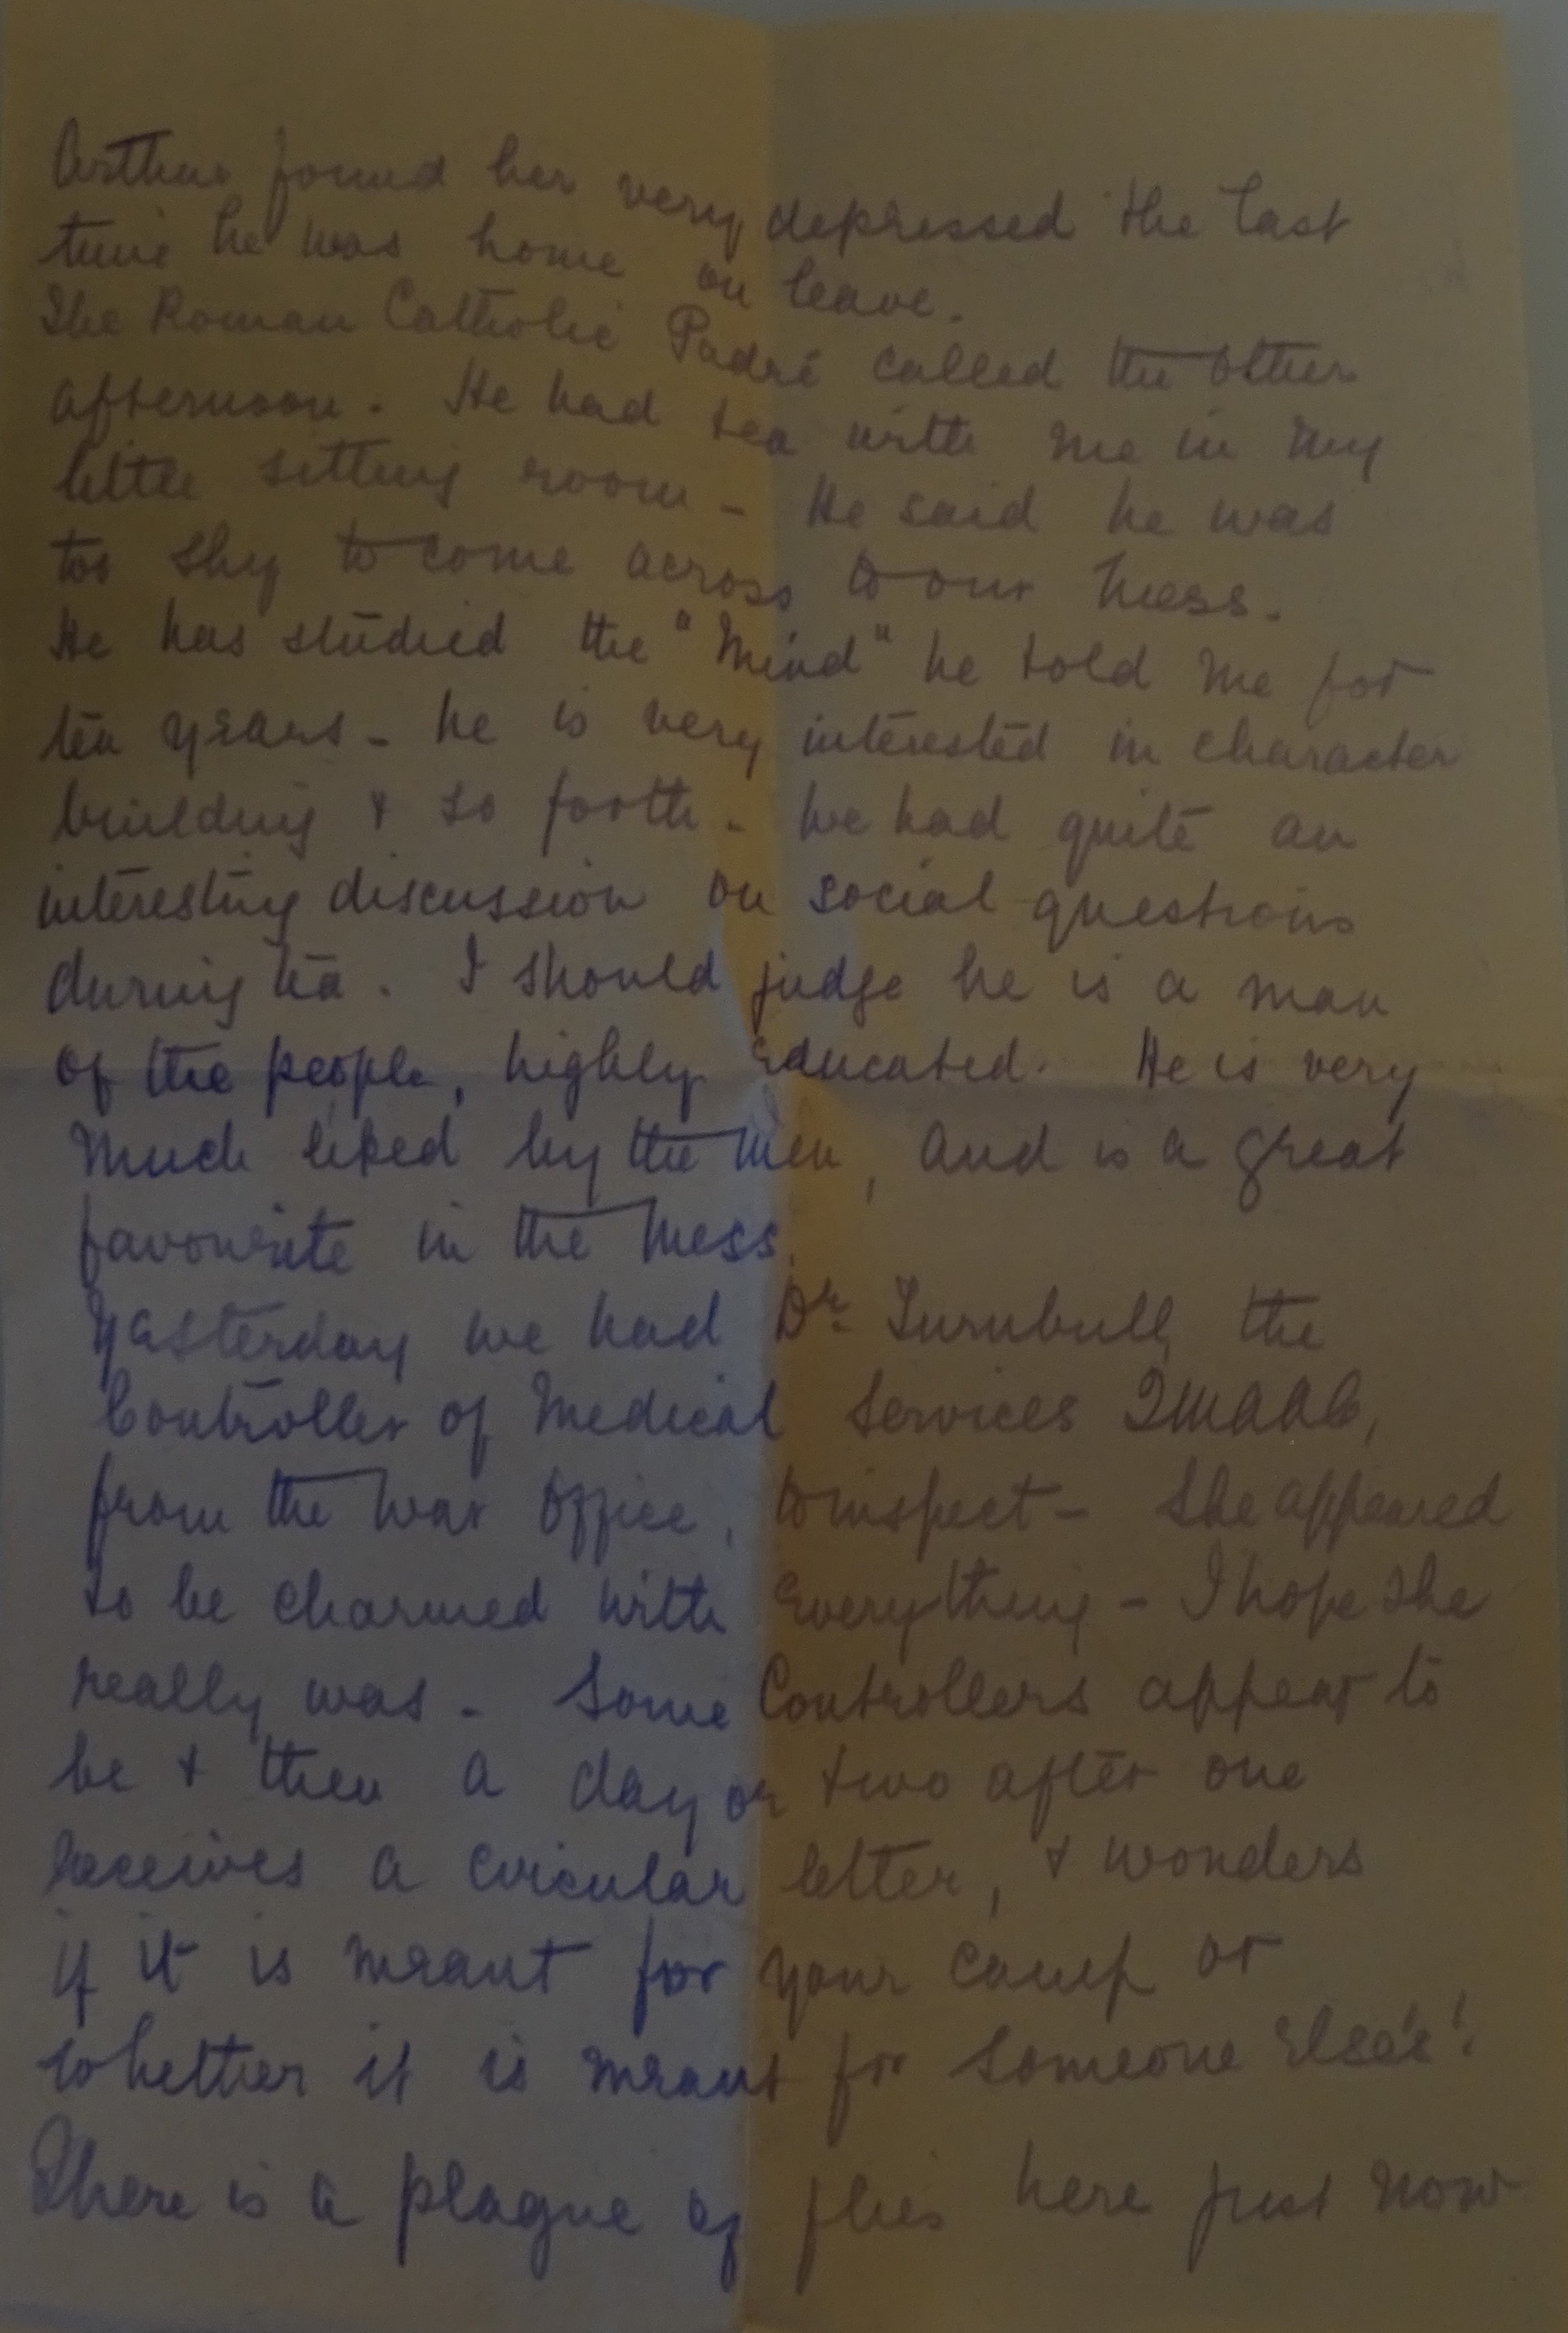 Arthur found her very depressed the last
time he was home on leave.
The Roman Catholic Padré called the other
afternoon. He had tea with me in my
little sitting room - He said he was
too shy to come across to our Mess.
He has studied the "Mind" he told me for
ten years - he is very interested in character
building & so forth - We had quite an
interesting discussion on social questions
during tea. I should judge he is a man
of the people, highly educated. He is very
much liked by the men, and is a great
favourite in the Mess.
Yesterday we had Dr. Turnbull, the
Controller of Medical Services QMAAC,
from the War Office, to inspect - She appeared
to be charmed with everything - I hope she
really was - Some Controllers appear to
be & then a day or two after one
receives a circular letter, & wonders
if it is meant for your camp or
whether it is meant for someone else's!
There is a plague of flies here just now